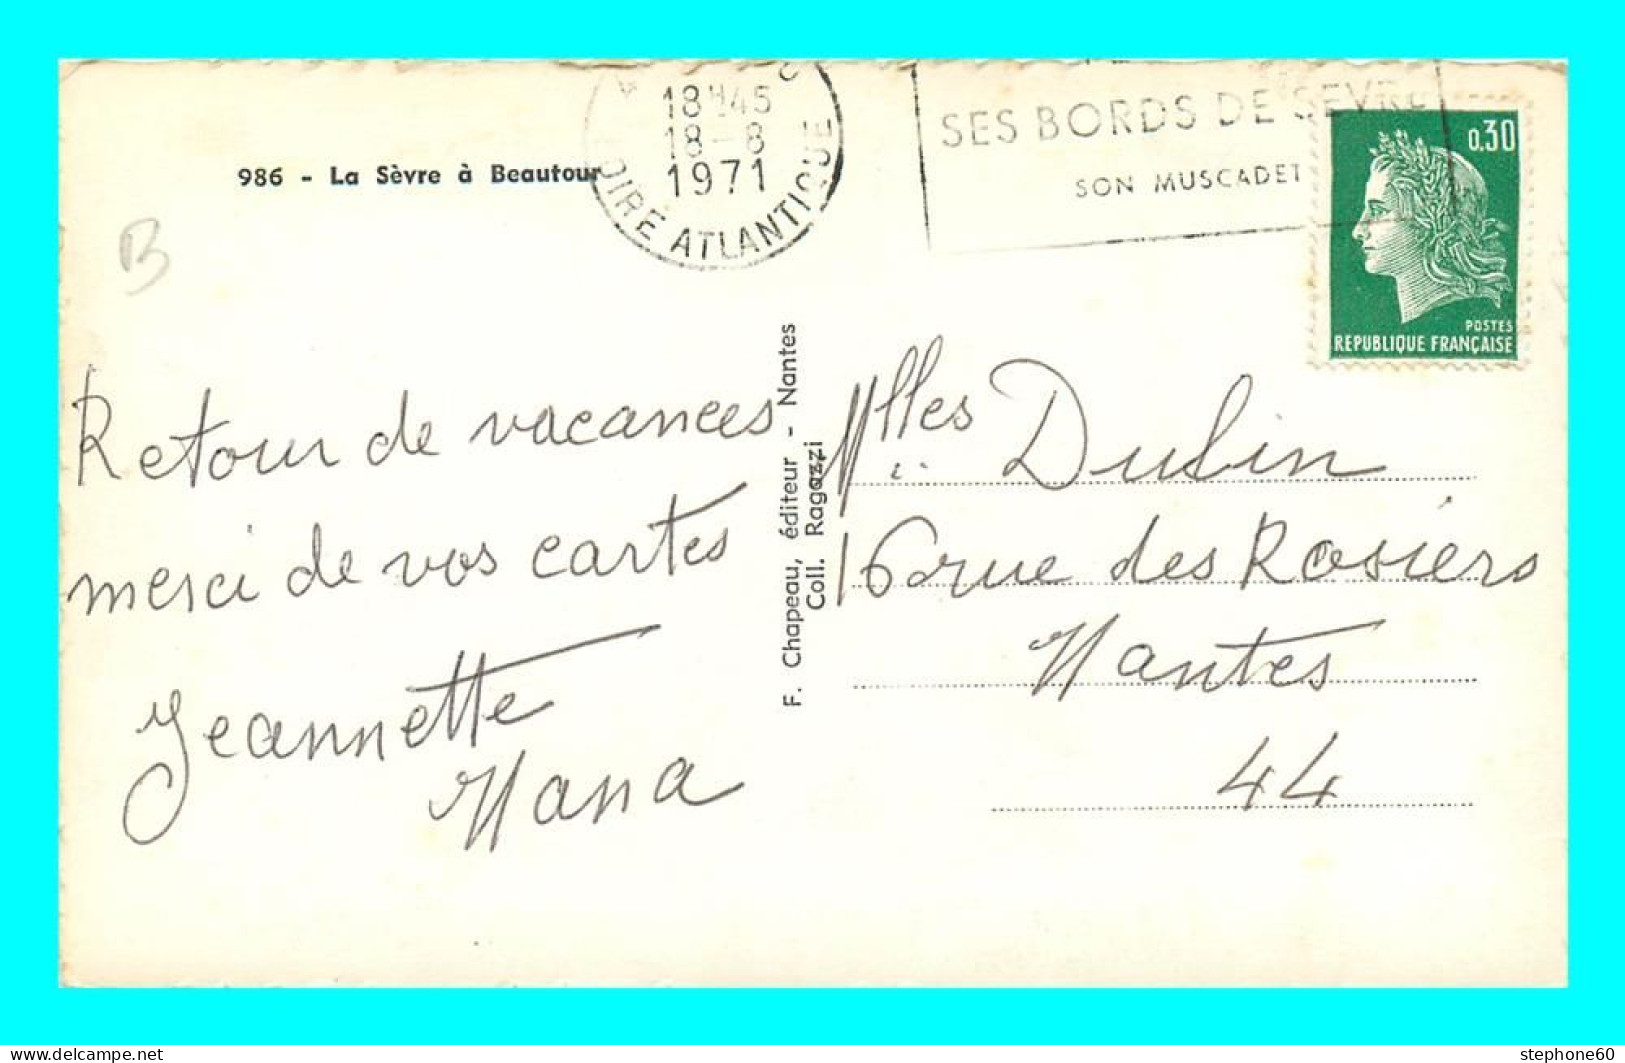 18H45
18-8
1971
LOIRE ATLANTIQUE
SES BORDS DE SEVRE
SON MUSCADET
0.30
POSTES
REPUBLIQUE FRANÇAISE
986 - La Sèvre à Beautour
B
Retour de vacances
merci de vos cartes
Jeannette
Nana
F. Chapeau, éditeur - Nantes
Coll. Ragazzi
Mlles Dubin
16 rue des Rosiers
Nantes
44
www.delcampe.net
stephone60